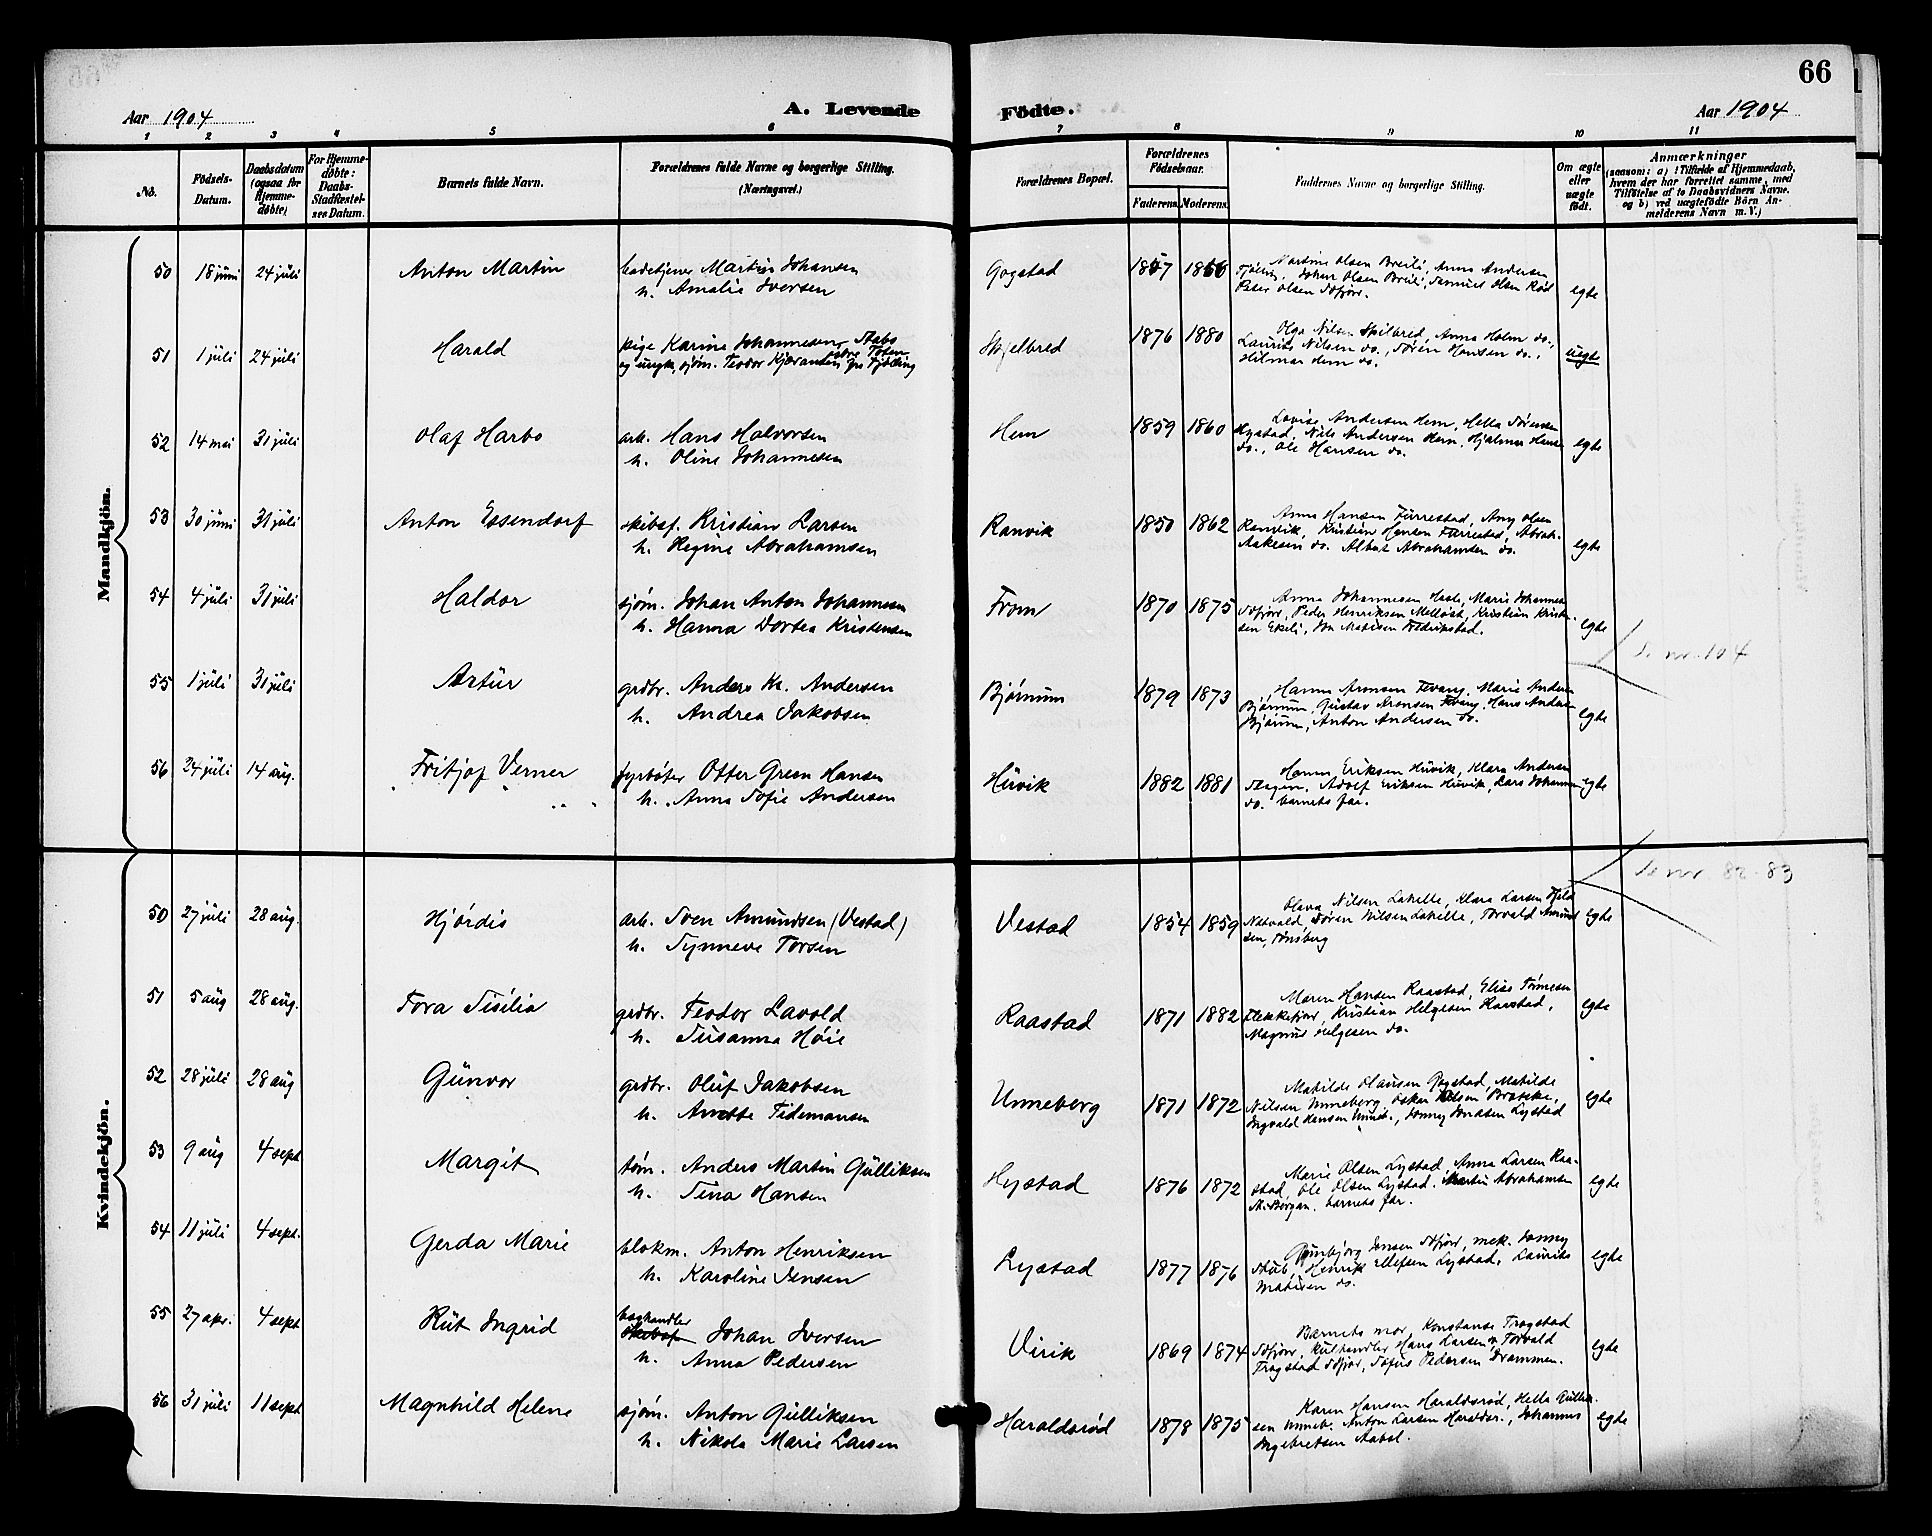 66
Aar 1904
A. Levende
Födte.
Aar 1904
1 2 3 4 5 6 7 8 9 10 11
No.
Födsels-
Datum.
Daabsdatum
(ogsaa for
Hjemme-
döbte)
For Hjemme-
döbte:
Daabs-
Stadfæstel-
ses Datum.
Barnets fulde Navn.
Forældrenes fulde Navne og borgerlige Stilling.
(Næringsvei.)
Forældrenes Bopæl.
Forældrenes
Födselsaar.
Faderens. Moderens.
Faddernes Navne og borgerlige Stilling.
Om ægte
eller
uægte
födt.
Anmærkninger
(saasom: a) i Tilfælde af Hjemmedaab,
hvem der har forrettet samme, med
Tilföielse af to Daabsvidners Navne.
og b) ved uægtefödte Börn An-
melderens Navn m. V.)
Mandkjön.
50 18 juni 24 juli Anton Martin badetjener Martin Johansen
h. Amalie Iversen
Gogstad 1857 1866
Martine Olsen Breili, Anna Andersen
Tjølling, Johan Olsen Breili, Samuel Olsen Rød
Peter Olsen Sdfjør.
egte
51 1 juli 24 juli Harald pige Karine Johannesen Stabo
østre Toten
og ungk. sjøm. Teodor Kjærandsen fra Tjølling
Skjelbred 1876 1880
Olga Nilsen Skilbred, Anna Holm do.,
Laurits Nilsen do., Søren Hansen do.,
Hilmar Hem do.
uegte
52 14 mai 31 juli Olaf Harbo arb. Hans Halvorsen
h. Oline Johannesen
Hem 1859 1860
Lovise Andersen Hem, Hella Sørensen
Hystad, Nils Andersen Hem, Hjalmar Hansen
do., Ole Hansen do.
egte
53 30 juni 31 juli Anton Essendorf skibsf. Kristian Larsen
h. Regine Abrahamsen
Ranvik 1850 1862
Anna Hansen Furrestad, Any Olsen
Ranvik, Kristian Hansen Furrestad, Abrah.
Aakesen do. Albert Abrahamsen do.
egte
54 4 juli 31 juli Haldor sjøm. Johan Anton Johannesen
h. Hanna Dortea Kristensen
From 1870 1875
Anna Johannesen Hasle, Marie Johannesen
Sdfjør, Peder Henriksen Melløst, Kristian Kristen-
sen Ekeli, Matisen Fredrikstad.
egte
Se nr. 104
55 1 juli 31 juli Artur grdbr. Anders Kr. Andersen
h. Andrea Jakobsen
Bjørnum 1879 1873
Hanna Aronsen Fevang, Marie Andersen
Bjørnum, Gustav Aronsen Fevang, Hans Andersen
Bjørnum, Anton Andersen do.
egte
56 24 juli 14 aug. Fritjof Verner fyrbøter Otter Green Hansen
h. Anna Sofie Andersen
Huvik 1882 1881
Hanna Eriksen Huvik, Klara Andersen
Skagen, Adolf Eriksen Huvik, Lars Johannesen
do. barnets far.
egte
Se nr. 82-83
Kvindekjön.
50 27 juli 28 aug. Hjørdis arb. Sven Amundsen (Vestad)
h. Synneve Torsen
Vestad 1854 1859
Olava Nilsen Lakelle, Klara Larsen Fjeld
Søren Nilsen Lakelle, Torvald Amund-
sen, Tønsberg
egte
51 5 aug 28 aug. Tora Sisilia grdbr. Teodor Lavold
h. Susanna Høie
Raastad 1871 1882
Maren Hansen Raastad, Elise Tønnesen
Flekkefjord, Kristian Helgesen Raastad,
Magnus Helgesen do.
egte
52 28 juli 28 aug Gunvor grdbr. Oluf Jakobsen
h. Anette Tidemansen
Unneberg 1871 1872
Matilde Clausen Gogstad, Matilde
Nilsen Unneberg, Oskar Nilsen Bratske,
Ingvald Hansen Unneb., Jonny Jonasen Lystad
egte
53 9 aug 4 sept Margit tøm. Anders Martin Gulliksen
h. Tina Hansen
Hystad 1876 1872
Marie Olsen Lystad, Anna Larsen Raa-
stad, Ole Olsen Lystad, Martin Abrahamsen
M. Borgan. barnets far.
egte
54 11 juli 4 sept. Gerda Marie blokm. Anton Henriksen
h. Karoline Jensen
Lystad 1877 1876
Gunbjørg Jensen Sdfjør, mek. Jonny
Stub, Henrik Ellefsen Lystad, Laurits
Matisen do.
egte
55 27 apr. 4 sept Rut Ingrid baghandler
skibsf. Johan Iversen
h. Anna Pedersen
Virik 1869 1874
Barnets mor, Konstanse Trogstad
Sdfjør, kulhandler Hans Larsen, Torvald
Trogstad Sdfjør, Sofus Pedersen Drammen.
egte
56 31 juli 11 sept Magnhild Helene sjøm. Anton Gulliksen
h. Nikola Marie Larsen
Haraldsrød 1878 1875
Karen Hansen Haraldsrød, Hella Gullik-
sen Unneb. Anton Larsen Haralds., Johannes
Ingebretsen Aabol.
egte